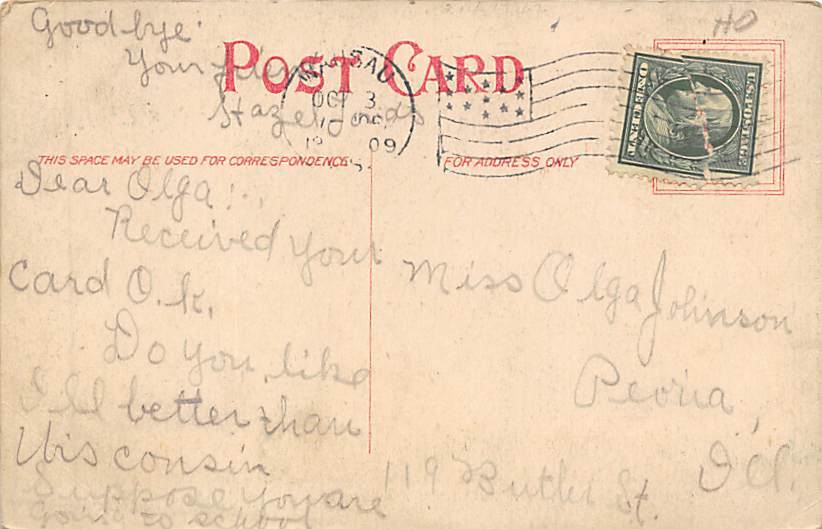 HO
Good-bye
Your friend
Hazel
POST CARD
WAUSAU
OCT 3
1909
THIS SPACE MAY BE USED FOR CORRESPONDENCE
FOR ADDRESS ONLY
U.S. POSTAGE
ONE CENT
Dear Olga:
Received your
card O.K.
Do you like
Ill better than
Wisconsin
Suppose you are
going to school
Miss Olga Johnson
Peoria,
Ill.
119 Butler St.